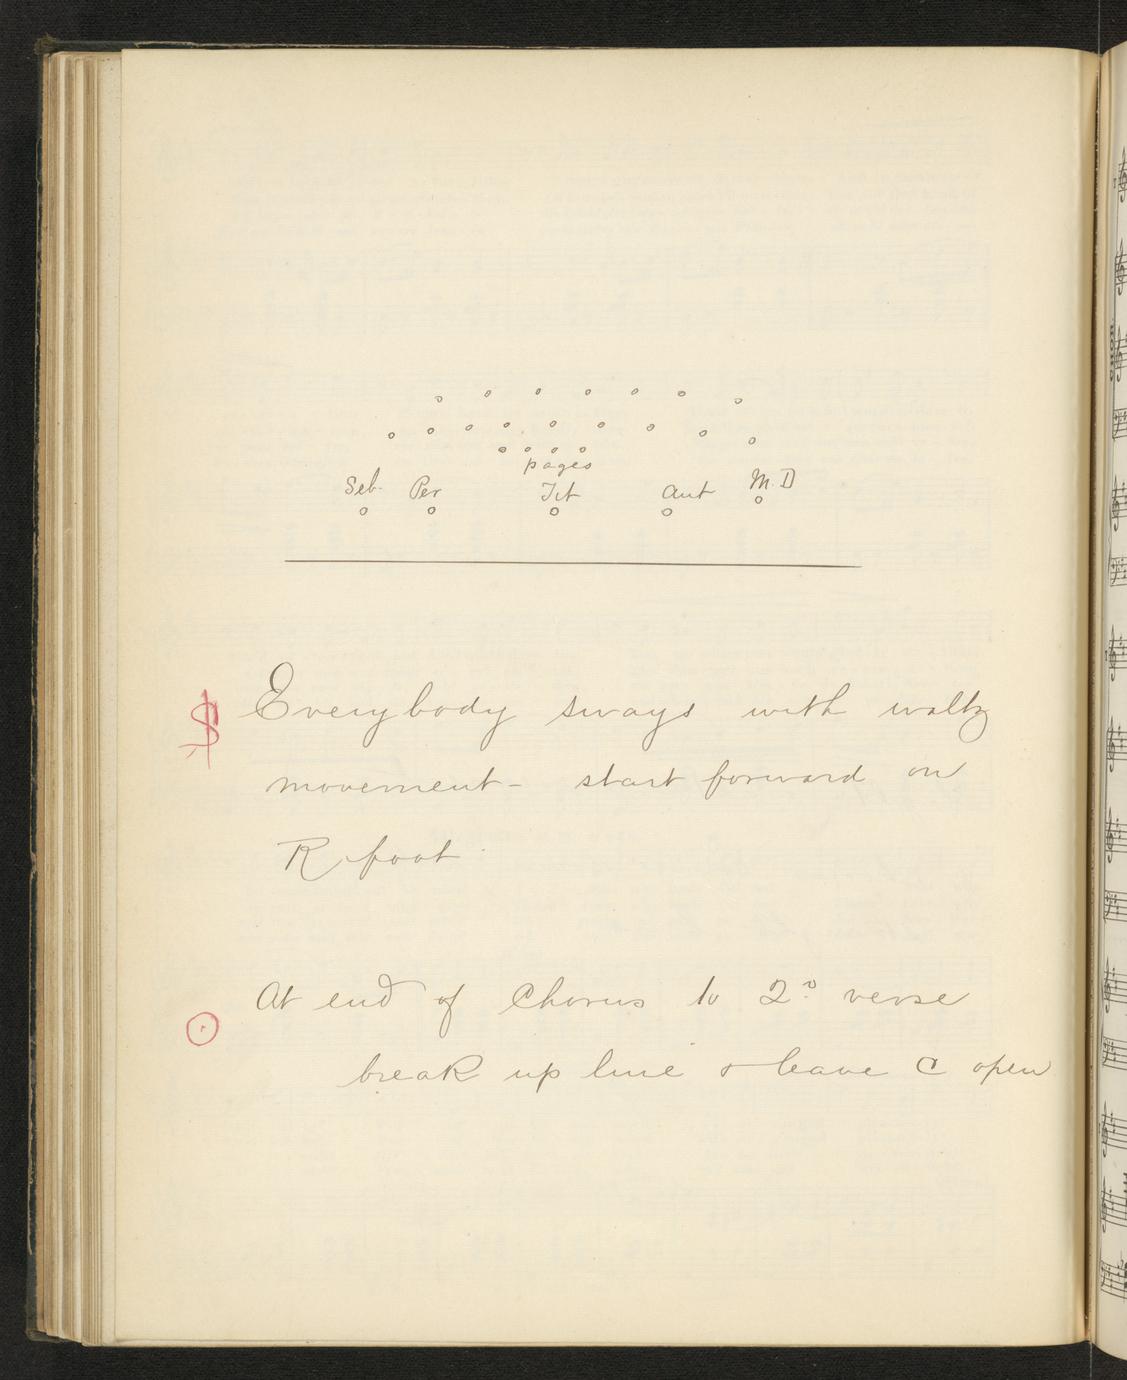 pages
Seb. Per Tit Ant M. D
$ Everybody sways with waltz
movement - start forward on
R foot
At end of Chorus to 2º verse
break up line & leave C open